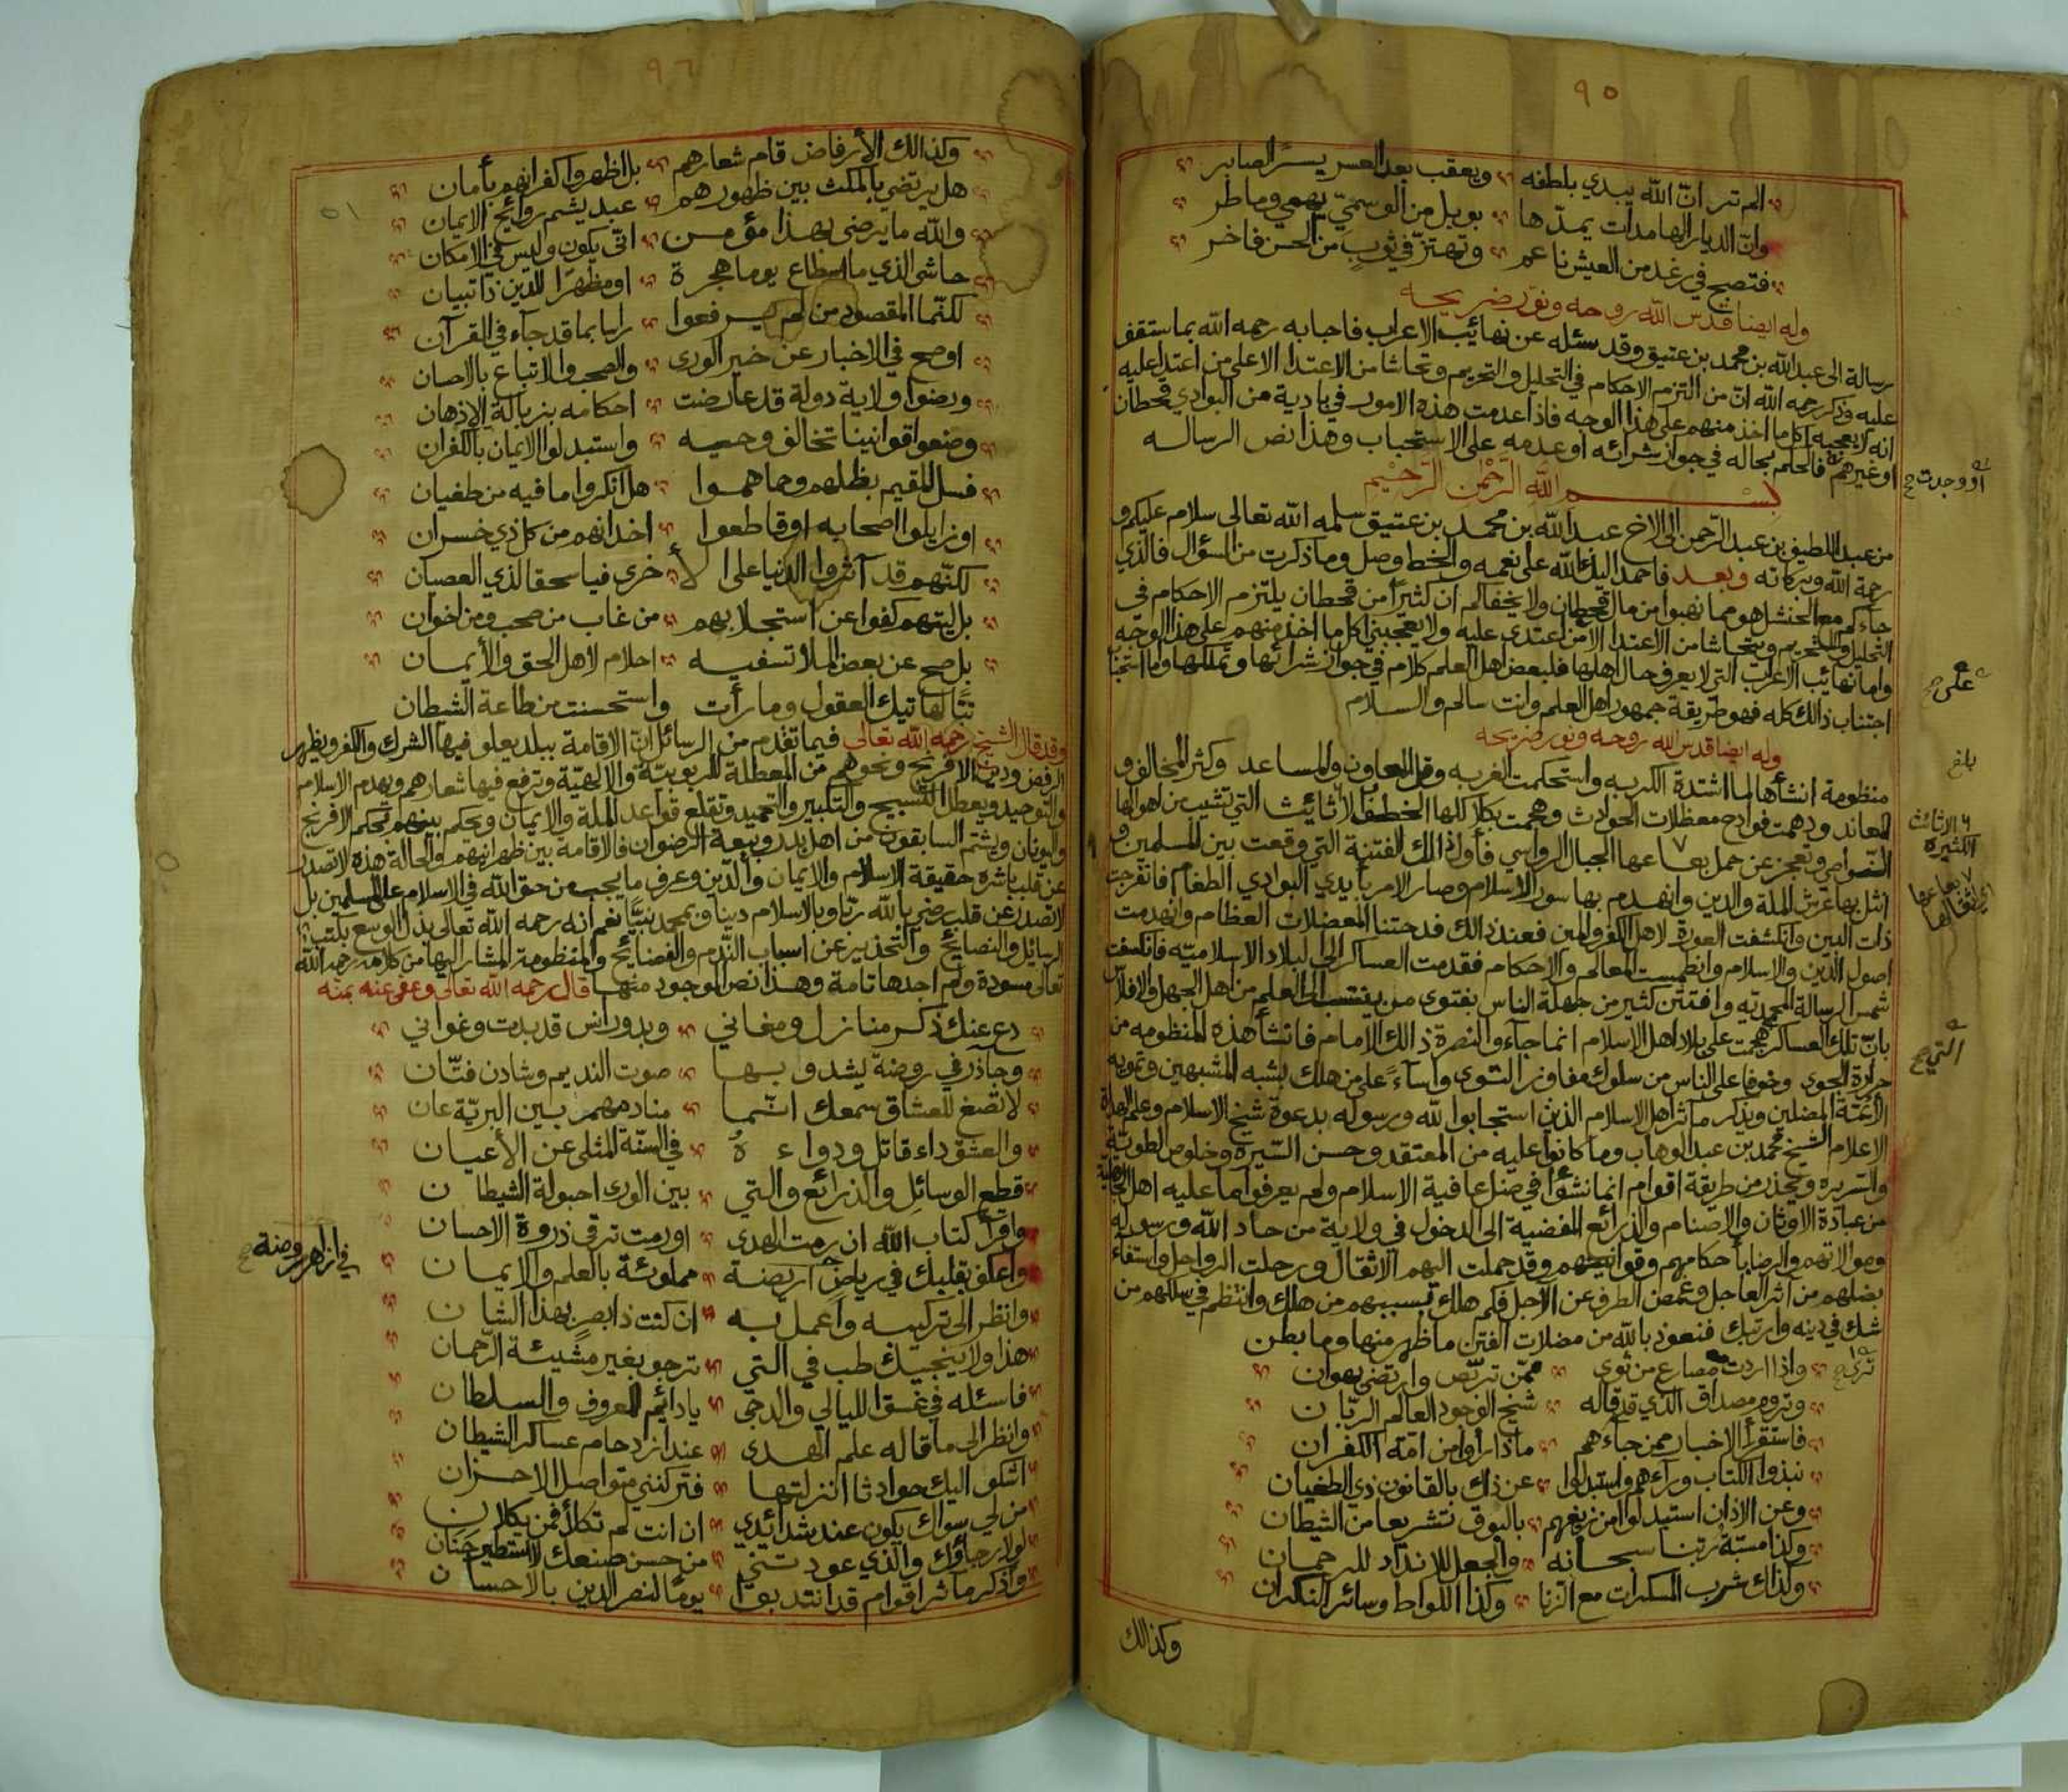 ٩٥
الم تر انّ الله يبدي بلطفه ويعقب بعد العسر يسرًا لصابر
وانّ الديار الهامدات يمدّها بوبل من الوسميّ يهمي وماطر
فتصبح في رغد من العيش ناعم وتهتزّ في ثوبٍ من الحسن فاخر
وله ايضا قدس الله روحه ونوّر ضريحه
رسالة الى عبد الله بن محمد بن عتيق وقد سئله عن نهائب الاعراب فاجابه رحمه الله بما ستقف
عليه وذكر رحمه الله انّ من التزم الاحكام في التحليل والتحريم وتحاشا من الاعتدا الا على من اعتدا عليه
انه لا يعجبه اكل ما اخذ منهم على هذا الوجه فاذا عدمت هذه الامور في بادية من البوادي قحطان
او غيرهم فالحكم بحاله في جواز شرائه او عدمه على الاستحباب وهذا نص الرساله
او وجدت صح
بسم الله الرّحمٰن الرّحيم
من عبد اللطيف بن عبد الرّحمن الى الاخ عبد الله بن محمد بن عتيق سلمه الله تعالى سلام عليكم و
رحمة الله وبركاته وبعد فاحمد اليك الله على نعمه والخط وصل وما ذكرت من السؤال فالذي
جاءكم مع الحنشل هو مما نهبوا من مال قحطان ولا يخفاكم ان كثيرًا من قحطان يلتزم الاحكام في
التحليل والتحريم ويتحاشا من الاعتدا الا من اعتدى عليه ولا يعجبني اكل ما اخذ منهم على هذا الوجه
على صح
واما نهائب الاعراب التي لا يعرف حال اهلها فلبعض اهل العلم كلام في جواز شرائها وتملكها واما
اجتناب ذالك كله فهو طريقة جمهور اهل العلم وانت سالم والسلام
وله ايضا قدس الله روحه ونور ضريحه
بلغ
منظومة انشأها لما اشتدة الكربه واستحكمت الغربه وقل المعاون والمساعد وكثر المخالف و
المعاند ودهمت فوادح معظلات الحوادث وهجمت بكلاكلها الخطف الاثائيث التي تشيب من اهوالها
الاثائث الكثيرة
النّواصي وتعجز عن حمل بعاعها الجبال الرواسي فأول ذالك الفتنة التي وقعت بين المسلمين و
بعاعها اي اثقالها
انثل بها عرش الملة والدين وانهدم بها سور الاسلام وصار الامر بأيدي البوادي الطغام فانفرجت
ذات البين وانكشفت العورة لاهل الكفر والمين فعند ذالك فدحتنا المعضلات العظام وانهدمت
اصول الدين والاسلام وانطمست المعالم والاحكام فقدمت العساكر الى البلاد الاسلاميّه فانكسفت
شمس الرسالة المحمديّه وافتتن كثير من جهلة الناس بفتوى من ينتسب الى العلم من اهل الجهل والافلاس
بانّ تلك العساكر هجمت على بلاد اهل الاسلام انما جاءو النصرة ذالك الامام فانشأ هذه المنظومه من
التي صح
حرارة الجوى وخوفا على الناس من سلوك مفاوز التوى وآساءً على من هلك بشبه المشبهين وتمويه
الائمّة المضلين ويذكر مآثر اهل الاسلام الذين استجابوا لله ورسوله بدعوة شيخ الاسلام وعلم الهداة
الاعلام الشيخ محمد بن عبد الوهاب وما كانوا عليه من المعتقد وحسن السّيرة وخلوص الطويّة
والسّريره ويحذر من طريقة اقوام انما نشؤا في ضل عافية الاسلام ولم يعرفوا ما عليه اهل الجاهلية
من عبادة الاوثان والاصنام والذرائع المفضية الى الدخول في ولاية من حاد الله ورسوله
وموالاتهم والرضا بأحكامهم وقوانينهم وقد حملت اليهم الاثقال ورحلت الرواحل واستفاء
بضلهم من آثر العاجل وغمض الطرف عن الآجل فكم هلك بسببهم من هلك وانتظم في سلكهم من
شك في دينه وارتبك فنعوذ بالله من مضلات الفتن ما ظهر منها وما بطن
ترى صح
واذا اردت مصارع من ثوى ممّن تربّص وارتضى بهوان
وتروم مصداق الذي قد قاله شيخ الوجود العالم الربّان
فاستقرأ الاخبار ممن جاءهم ماذا رأوا من امّة الكفران
نبذوا الكتاب وراءهم واستبدلوا عن ذاك بالقانون ذي الطغيان
وعن الاذان استبدلوا من زيغهم بالبوق تشريعا من الشيطان
وكذا مسبّة ربّنا سبحانه والجعل للانداد للرحمان
وكذاك شرب المسكرات مع الزنا وكذا اللواط وسائر النكران
وكذالك
٩٦
٥١
وكذالك الأرفاض قام شعارهم بل اظهروا كفرانهم بأمان
هل يرتضي بالمكث بين ظهورهم عبد يشم روائح الايمان
والله ما يرضى بهذا مؤمن انّى يكون وليس في الامكان
حاشى الذي ما اسطاع يوما هجرة او مظهرًا للدين ذا تبيان
لكنّما المقصود من لم يرفعوا راسا بما قد جاء في القرآن
او صح في الاخبار عن خير الورى والصحب والاتباع بالاحسان
ورضوا ولاية دولة قد عارضت احكامه بزبالة الاذهان
وضعوا قوانينا تخالف وحيه واستبدلوا الايمان بالكفران
فسل المقيم بظلهم وحماهموا هل انكروا ما فيه من طغيان
او زايلوا اصحابه او قاطعوا اخدانهم من كل ذي خسران
لكنّهم قد آثروا الدنيا على الأخرى فيا سحقا لذي العصيان
بل ليتهم كفوا عن استجلابهم من غاب من صحب ومن اخوان
بل صح عن بعض الملأ تسفيه احلام لاهل الحق والأيمان
تبًّا لهاتيك العقول وما رأت واستحسنت من طاعة الشيطان
وقد قال الشيخ رحمه الله تعالى فيما تقدم من الرسائل انّ الاقامة ببلد يعلو فيها الشرك والكفر ويظهر
الرفض ودين الافرنج ونحوهم من المعطلة للربوبيّة والالهيّة وترفع فيها شعارهم ويهدم الاسلام
والتوحيد ويعطل التسبيح والتكبير والتحميد وتقلع قواعد الملة والايمان ويحكم بينهم بحكم الافرنج
واليونان ويشتم السابقون من اهل بدر وبيعة الرضوان فالاقامة بين ظهرانيهم والحالة هذه لا تصدر
عن قلب باشره حقيقة الاسلام والايمان والدّين وعرف ما يجب من حق الله في الاسلام على المسلمين بل
لا تصدر عن قلب رضي بالله ربّا وبالاسلام دينا وبمحمد نبيًّا نعم انه رحمه الله تعالى بذل الوسع بكتب
الرسايل والنصائح والتحذير عن اسباب النّدم والفضائح والمنظومة المشار اليها من كلامه رحمه الله
تعالى مسودة ولم اجدها تامة وهذا نص الموجود منها قال رحمه الله تعالى وعفى عنه بمنه
دع عنك ذكر منازل ومغاني وبدور انس قد بدت وغواني
وجاذر في روضة يشدو بها صوت النديم وشادن فتّان
لا تصغ للعشاق سمعك انّما منادمهم بين البريّة عان
والعشق داء قاتل ودواءهُ في السنّة المثلى عن الأعيان
قطع الوسائل والذرائع والتي بين الورى احبولة الشيطان
واقرأ كتاب الله ان رمت الهدى او رمت ترقى ذروة الاحسان
واعكف بقلبك في رياض اريضة مملوئة بالعلم والايمان
في ازاهر روضة صح
وانظر الى تركيبه واعمل به ان كنت ذا بصرٍ بهذا الشان
هذا ولا ينجيك طب في التي ترجو بغير مشيئة الرّحمان
فاسئله في غسق الليالي والدجى يا دائم المعروف والسلطان
وانظر الى ما قاله علم الهدى عند ازدحام عساكر الشيطان
اشكو اليك حوادثا انزلتها فتركنني متواصل الاحزان
من لي سواك يكون عند شدائدي ان انت لم تكلأ فمن يكلان
لولا رجاؤك والذي عودتني من حسن صنعك لاستطير جَنَان
واذكر مآثر اقوام قد انتدبوا يومًا لنصر الدين بالاحسان